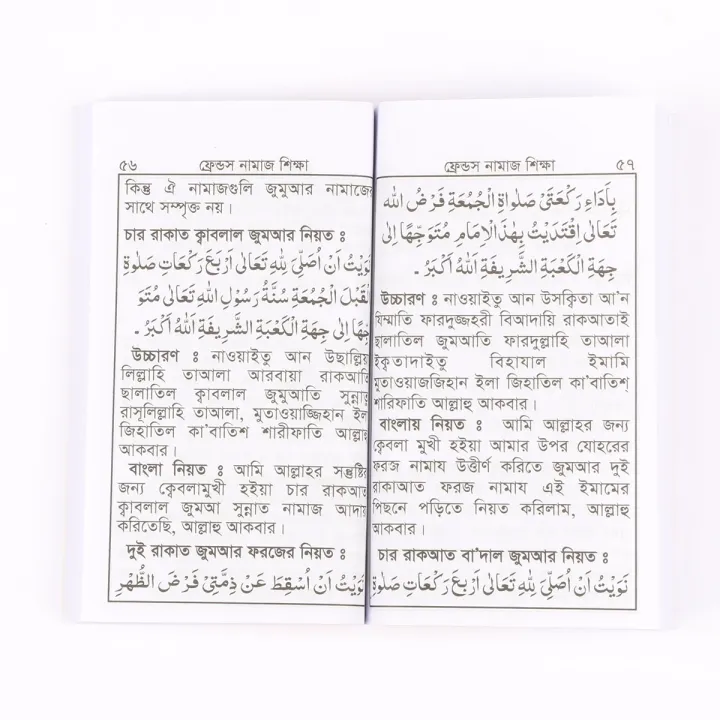 ৫৬ ফ্রেন্ডস নামাজ শিক্ষা
কিন্তু ঐ নামাজগুলি জুমুআর নামাজের
সাথে সম্পৃক্ত নয়।
চার রাকাত ক্বাবলাল জুমআর নিয়ত ঃ
نَوَيْتُ اَنْ اُصَلِّىَ لِلّٰهِ تَعَالٰى اَرْبَعَ رَكْعَاتِ صَلٰوةِ
الْقَبْلَ الْجُمُعَةِ سُنَّةُ رَسُوْلِ اللهِ تَعَالٰى مُتَوَ
جِّهًا اِلٰى جِهَةِ الْكَعْبَةِ الشَّرِيْفَةِ اَللهُ اَكْبَرُ ۔
উচ্চারণ ঃ নাওয়াইতু আন উছাল্লিয়া
লিল্লাহি তাআলা আরবায়া রাকআতি
ছালাতিল ক্বাবলাল জুমুআতি সুন্নাতু
রাসূলিল্লাহি তাআলা, মুতাওয়াজ্জিহান ইলা
জিহাতিল কা'বাতিশ শারীফাতি আল্লাহু
আকবার।
বাংলা নিয়ত ঃ আমি আল্লাহর সন্তুষ্টির
জন্য ক্বেবলামুখী হইয়া চার রাকআত
ক্বাবলাল জুমআ সুন্নাত নামাজ আদায়
করিতেছি, আল্লাহু আকবার।
দুই রাকাত জুমআর ফরজের নিয়ত ঃ
نَوَيْتُ اَنْ اُسْقِطَ عَنْ ذِمَّتِىْ فَرْضَ الظُّهْرِ
ফ্রেন্ডস নামাজ শিক্ষা ৫৭
بِاَدَاءِ رَكْعَتَىْ صَلٰواةِ الْجُمُعَةِ فَرْضُ الله
تَعَالٰى اِقْتَدَيْتُ بِهٰذَ الْاِمَامِ مُتَوَجِّهًا اِلٰى
جِهَةِ الْكَعْبَةِ الشَّرِيْفَةِ اَللهُ اَكْبَرُ ۔
উচ্চারণ ঃ নাওয়াইতু আন উসক্বিতা আ'ন
যিম্মাতি ফারদুজ্জহরী বিআদায়ি রাকআতাই
ছালাতিল জুমআতি ফারদুল্লাহি তাআলা
ইক্বতাদাইতু বিহাযাল ইমামি
মুতাওয়াজজিহান ইলা জিহাতিল কা'বাতিশ্
শারিফাতি আল্লাহু আকবার।
বাংলায় নিয়ত ঃ আমি আল্লাহর জন্য
কেবলা মুখী হইয়া আমার উপর যোহরের
ফরজ নামায উত্তীর্ণ করিতে জুমআর দুই
রাকাআত ফরজ নামায এই ইমামের
পিছনে পড়িতে নিয়ত করিলাম, আল্লাহু
আকবার।
চার রাকআত বা'দাল জুমআর নিয়ত ঃ
نَوَيْتُ اَنْ اُصَلِّىَ لِلّٰهِ تَعَالٰى اَرْبَعَ رَكْعَاتِ صَلٰوةِ